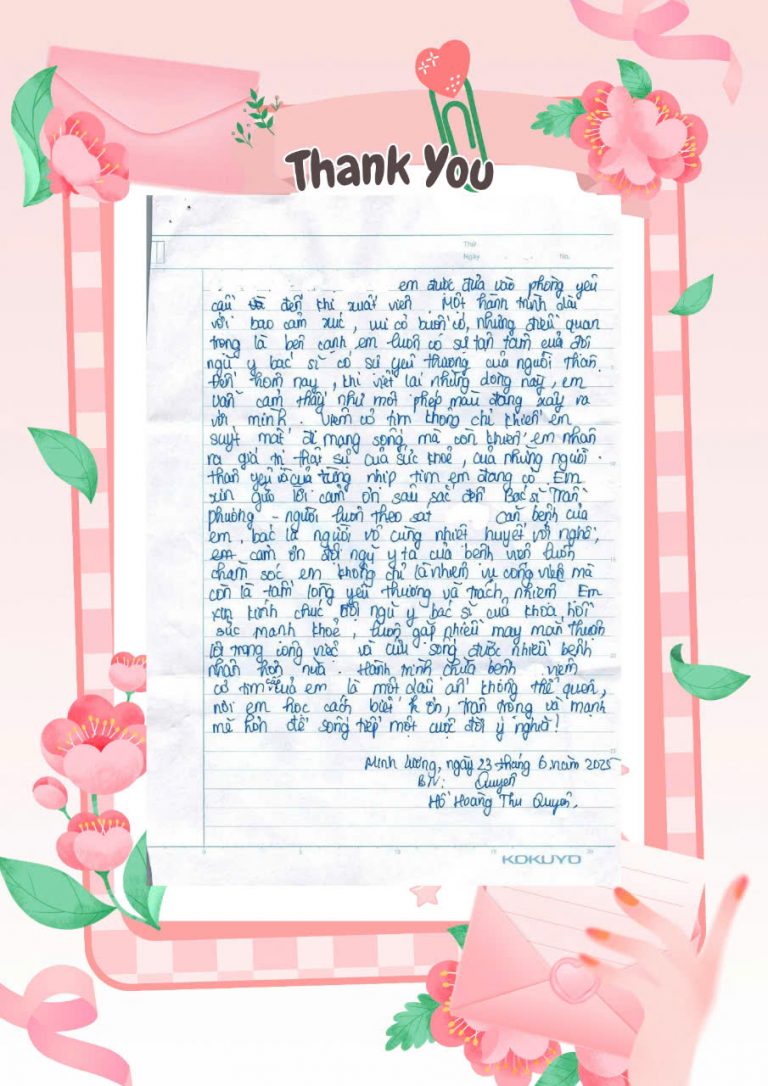 Thank You
Thứ
Ngày No.
em được đưa vào phòng yêu
cầu và đến khi xuất viện. Một hành trình dài
với bao cảm xúc, vui có buồn có, nhưng điều quan
trọng là bên cạnh em luôn có sự tận tâm của đội
ngũ y bác sĩ có sự yêu thương của người thân.
Đến hôm nay, khi viết lại những dòng này, em
vẫn cảm thấy như một phép màu đang xảy ra
với mình. Viêm cơ tim không chỉ khiến em
suýt mất đi mạng sống mà còn khiến em nhận
ra giá trị thật sự của sức khoẻ, của những người
thân yêu và của từng nhịp tim em đang có. Em
xin gửi lời cảm ơn sâu sắc đến Bác sĩ Trần
Phương - người luôn theo sát căn bệnh của
em, bác là người vô cùng nhiệt huyết với nghề,
em cảm ơn đội ngũ y tá của bệnh viện luôn
chăm sóc em không chỉ là nhiệm vụ công việc mà
còn là tấm lòng yêu thương và trách nhiệm. Em
xin kính chúc đội ngũ y bác sĩ của khoa hồi
sức mạnh khoẻ, luôn gặp nhiều may mắn thuận
lợi trong công việc và cứu sống được nhiều bệnh
nhân hơn nữa. Hành trình chữa bệnh viêm
cơ tim cấp của em là một dấu ấn không thể quên,
nơi em học cách biết ơn, trân trọng và mạnh
mẽ hơn để sống tiếp một cuộc đời ý nghĩa!
Minh Lương, ngày 23 tháng 6 năm 2025
BN: Quyên
Hồ Hoàng Thu Quyên.
KOKUYO